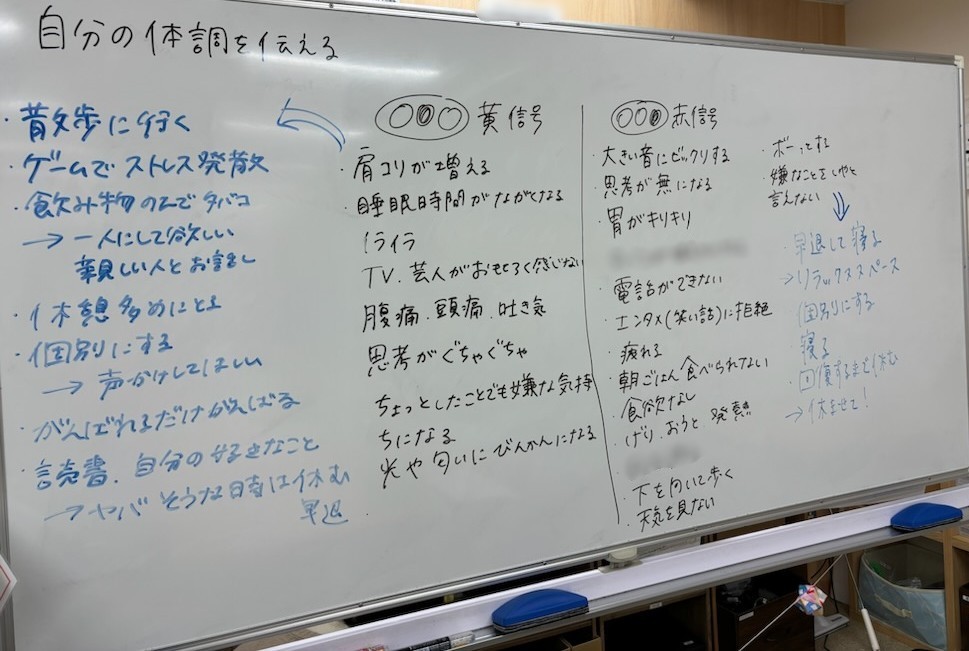 自分の体調を伝える
・散歩に行く
・ゲームでストレス発散
・飲み物のんでタバコ
→一人にして欲しい
親しい人とお話し
・休憩多めにとる
・個別にする
→声かけしてほしい
・がんばれるだけがんばる
・読書、自分の好きなこと
→ヤバそうな日時は休む
早退
黄信号
・肩コリが増える
・睡眠時間がながくなる
イライラ
TV、芸人がおもしろく感じない
腹痛、頭痛、吐き気
思考がぐちゃぐちゃ
ちょっとしたことでも嫌な気持
ちになる
光や匂いにびんかんになる
赤信号
・大きい音にビックリする
・思考が無になる
・胃がキリキリ
・電話ができない
・エンタメ(笑い話)に拒絶
・疲れる
・朝ごはん食べられない
・食欲なし
・げり、おうと 発熱
・下を向いて歩く
・天気を見ない
・ボーっとする
嫌なことをいやと
言えない
・早退して寝る
→リラックススペース
個別にする
寝る
・回復するまで休む
→休ませて!